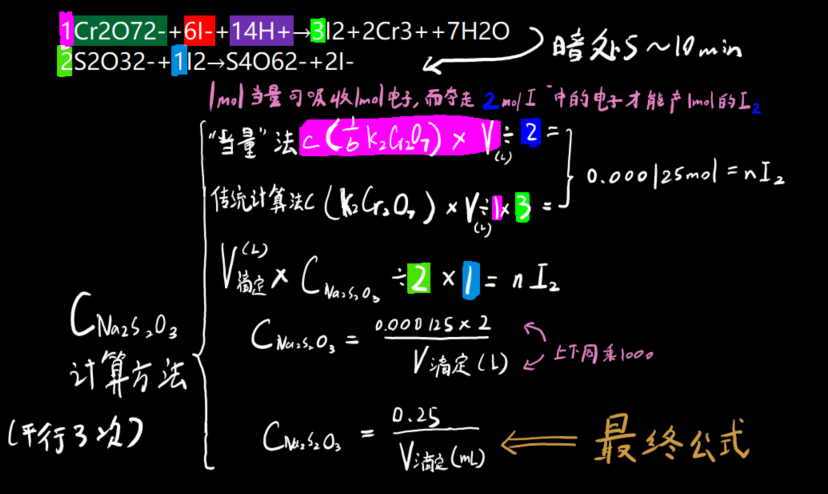 1Cr2O72-+6I-+14H+→3I2+2Cr3++7H2O
2S2O32-+1I2→S4O62-+2I-
暗处5~10min
1mol当量可吸收1mol电子,而夺走2molI⁻中的电子才能产1mol的I₂
"当量"法 C(1/6 K₂Cr₂O₇)×V(L)÷2=
传统计算法C(K₂Cr₂O₇)×V(L)÷1×3=
0.000125mol=nI₂
V滴定(L)×CNa₂S₂O₃÷2×1=nI₂
CNa₂S₂O₃=0.000125×2/V滴定(L)
上下同乘1000
CNa₂S₂O₃
计算方法
(平行3次)
CNa₂S₂O₃=0.25/V滴定(mL)
⇐最终公式